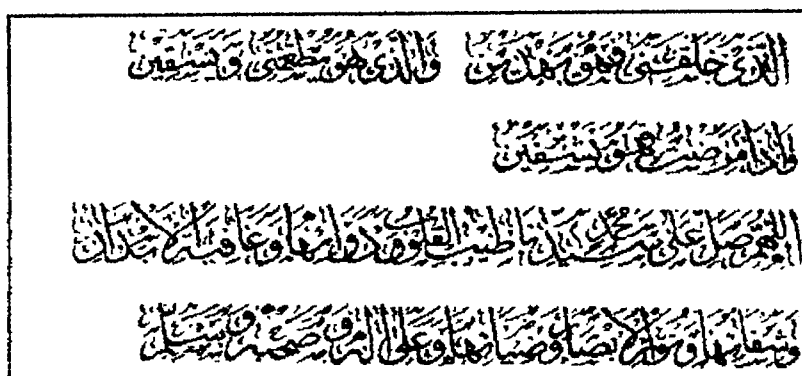 الذى خلقنى فهو يهدين والذى هو يطعمنى ويسقين
واذا مرضت فهو يشفين
اللهم صل على سيدنا محمد طب القلوب ودوائها وعافية الابدان
وشفائها ونور الابصار وضيائها وعلى اله وصحبه وسلم